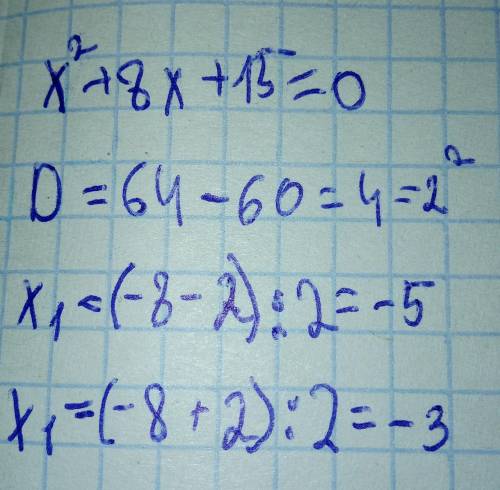 x²+8x+15=0
D=64-60=4=2²
x₁=(-8-2):2=-5
x₁=(-8+2):2=-3